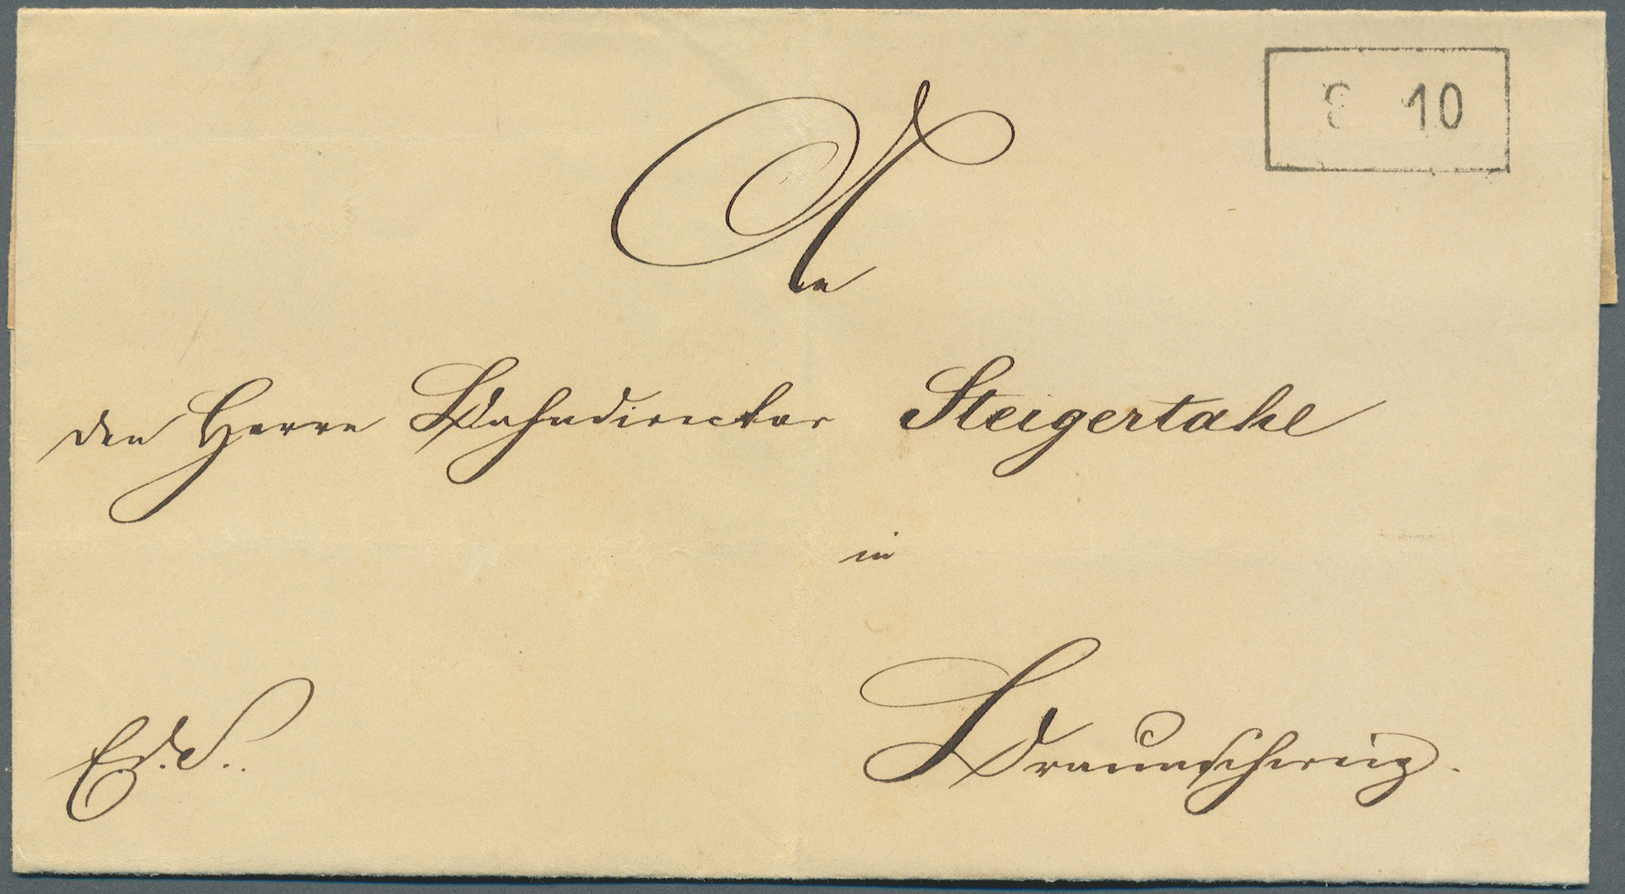 8 10
An
den Herrn Bahndirector Steigertahl
in
Braunschweig.